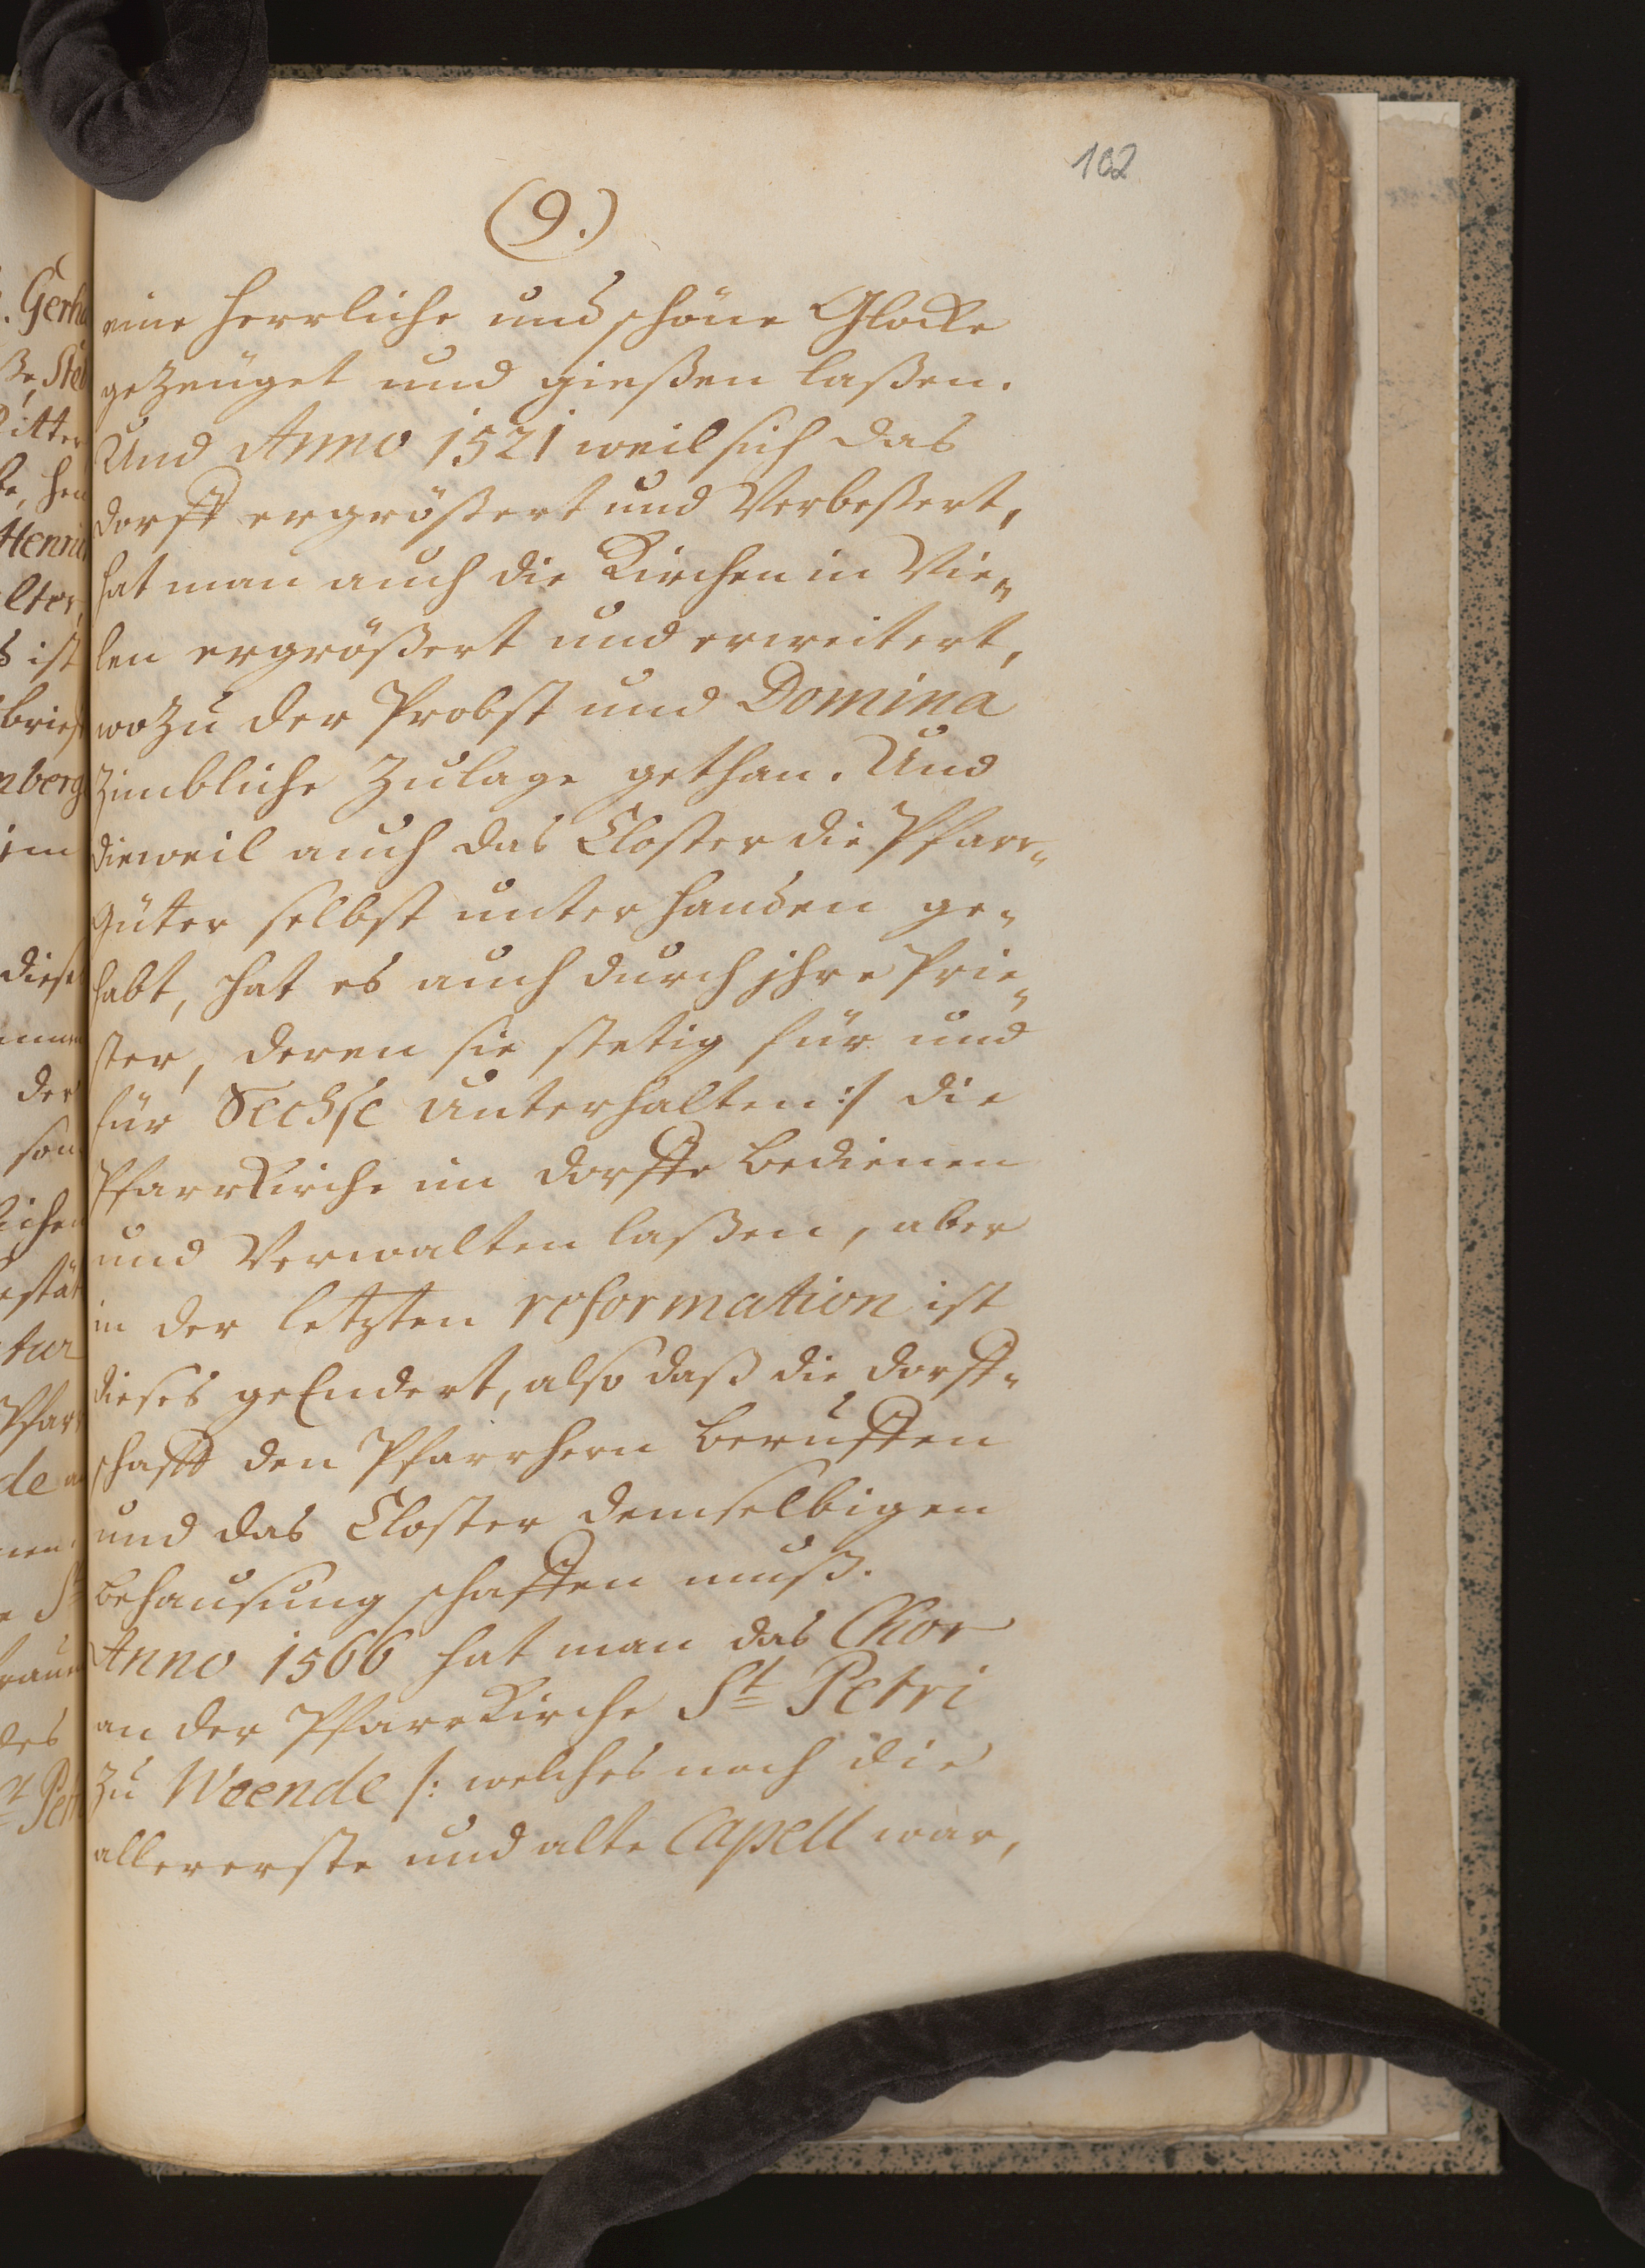 102
(9.)
eine herrliche und schöne Glocke
gezeüget und gießen laßen.
Und Anno 1521 weil sich das
dorff ergrößert und Verbeßert,
hat man auch die Kirchen in Vie„
len ergrößert und erweitert,
wozu der Probst und Domina
Zimbliche Zulage gethan. Und
dieweil auch das Closter die Pfarr„
Güter selbst unter handen ge„
habt, hat es auch durch jhre Prie„
ster, deren sie stetig für und
für Sechse Unterhalten :/ die
Pfarrkirche im dorffe bedienen
und Verwalten laßen, aber
in der letzten reformation ist
dieses geEndert, also daß die dorff„
schafft den Pfarrhern beruffen
und das Closter demselbigen
behausung schaffen muß.
Anno 1566 hat man das Chor
an der Pfarrkirche St Petri
zu Weende /: welches noch die
allererste und alte Capell war,